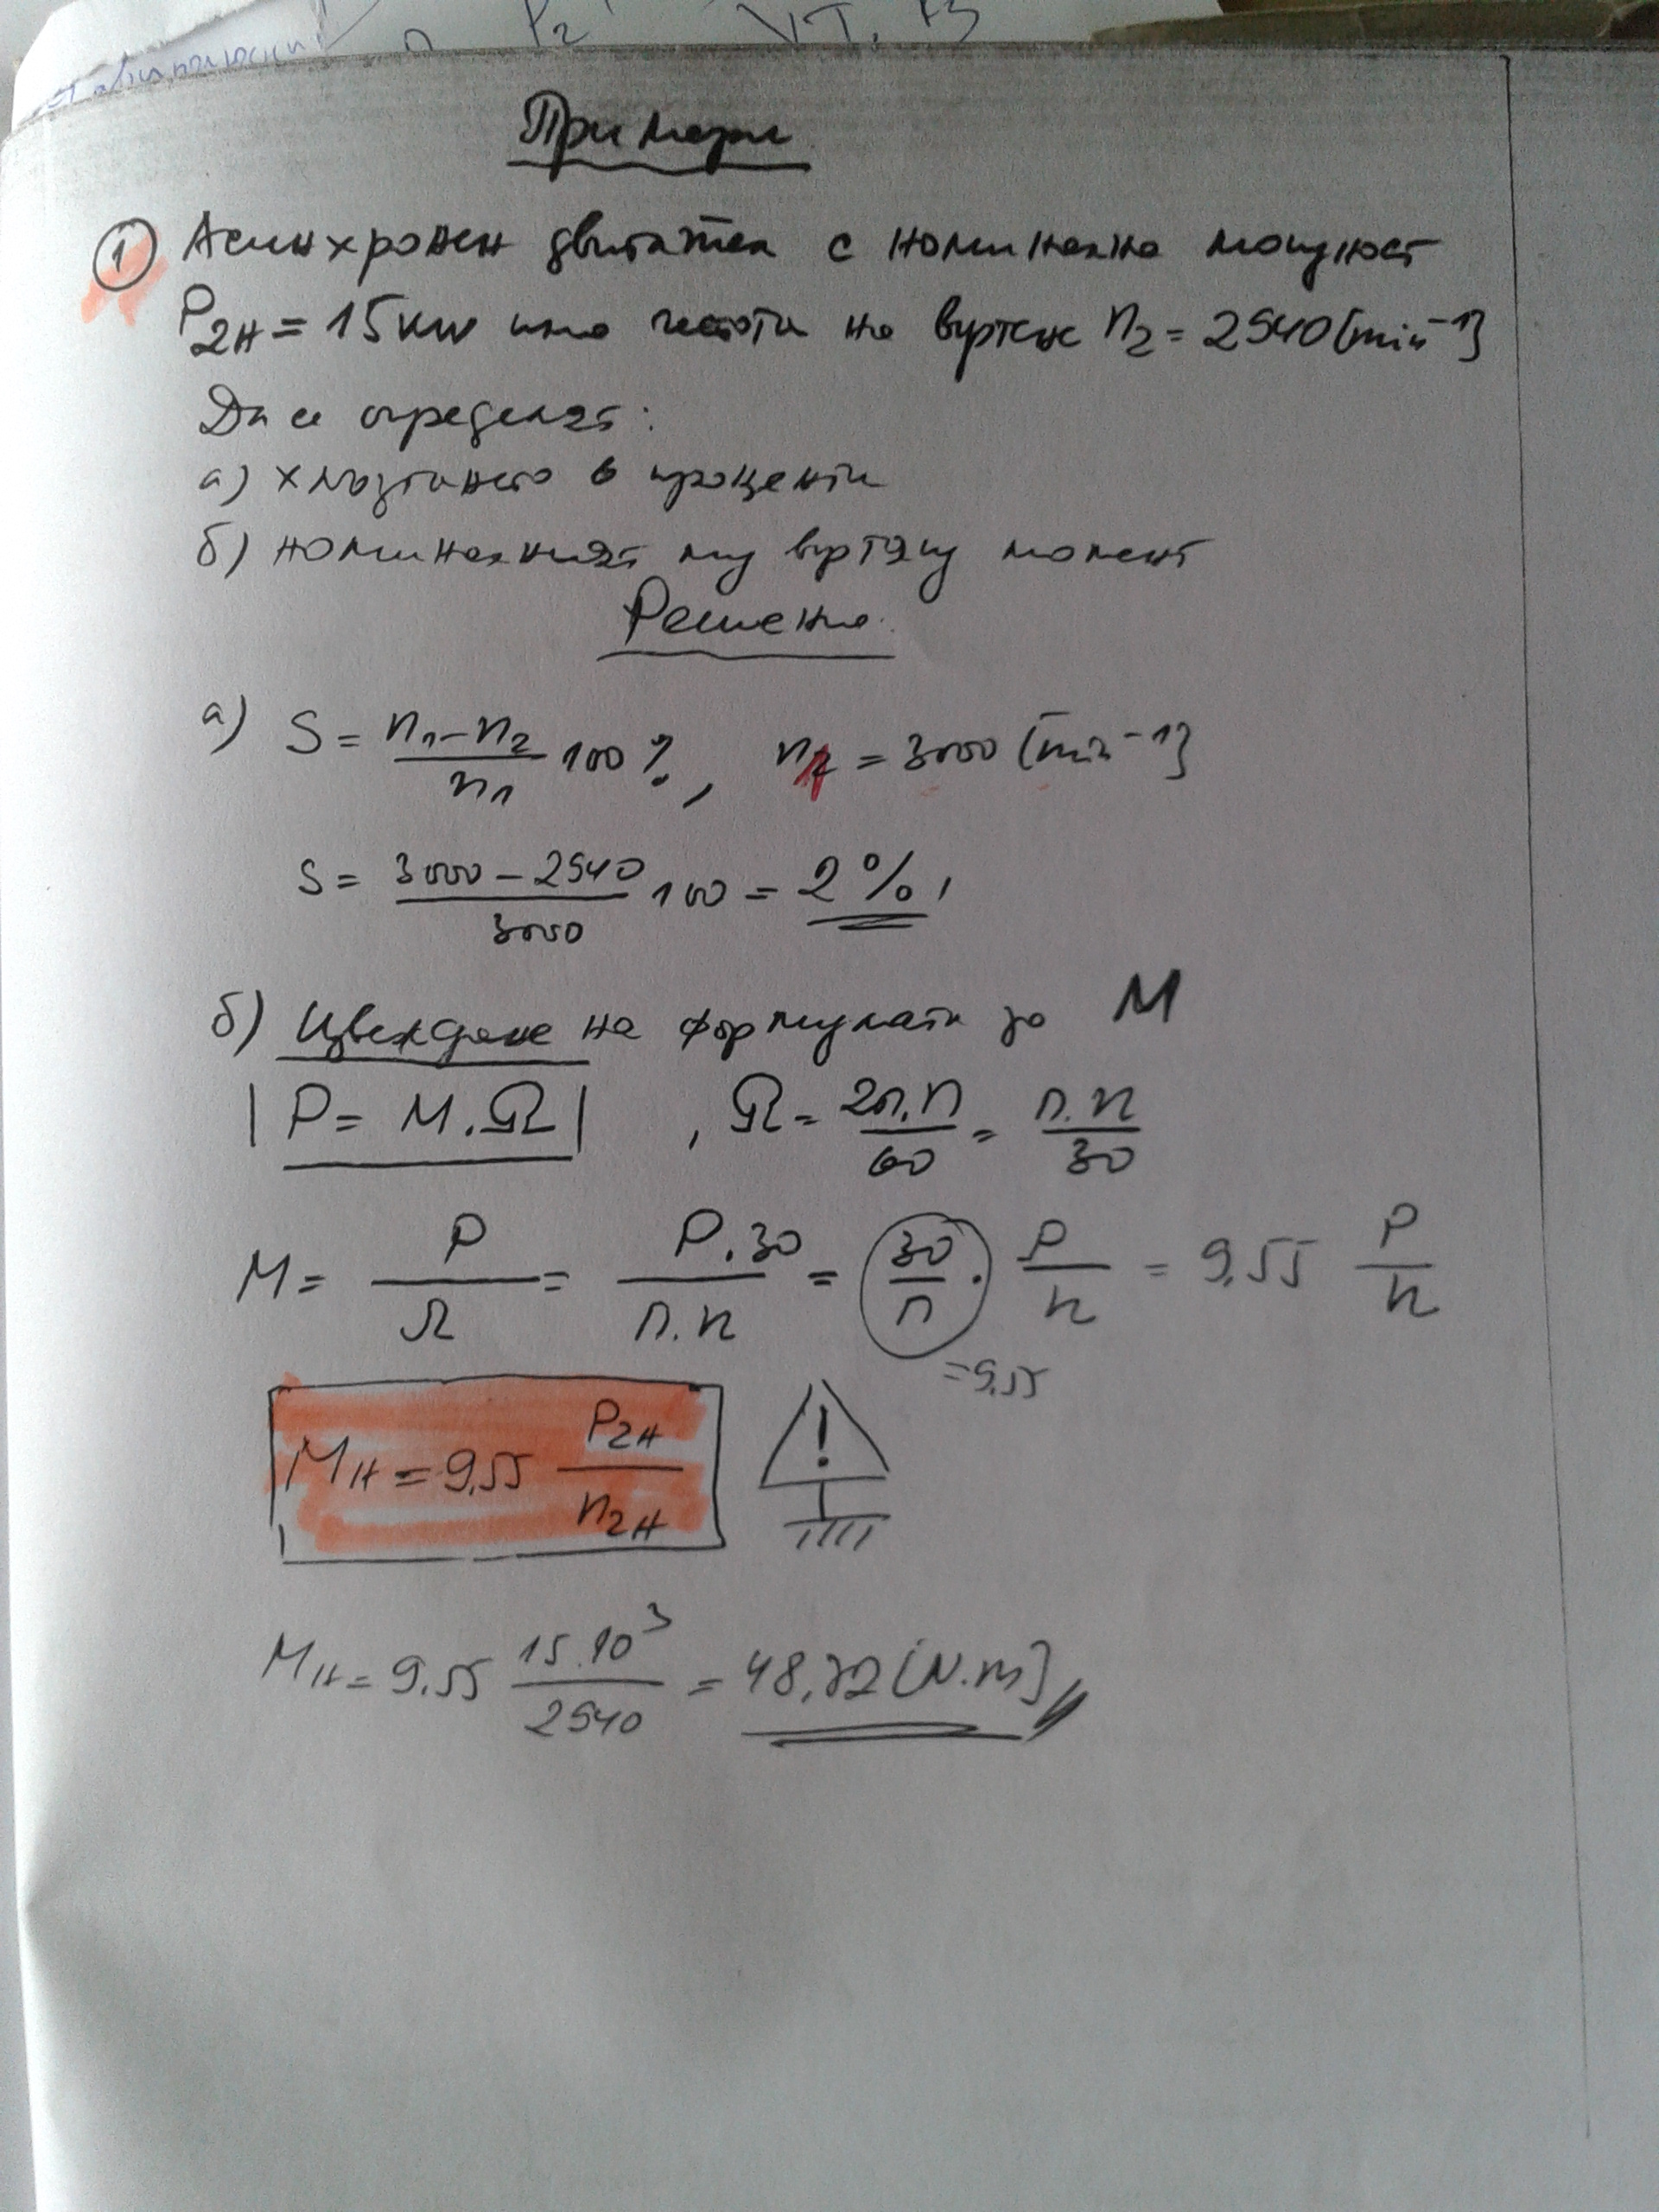 P2 VT. 13
Примери
① Асинхронен двигател с номинална мощност
P2н = 15 kW има честота на въртене n2 = 2940 [min⁻¹]
Да се определят:
а) хлъзгането в проценти
б) номиналният му въртящ момент
Решение.
а) S = (n1 - n2)/n1 100 %, n1 = 3000 [min⁻¹]
S = (3000 - 2940)/3000 100 = 2 %,
б) Извеждане на формулата за M
| P = M.Ω | , Ω = 2π.n/60 = π.n/30
M = P/Ω = P.30/π.n = 30/π . P/n = 9,55 P/n
= 9,55
Mн = 9,55 P2н/n2н !
Mн = 9,55 15.10³/2940 = 48,72 [N.m]